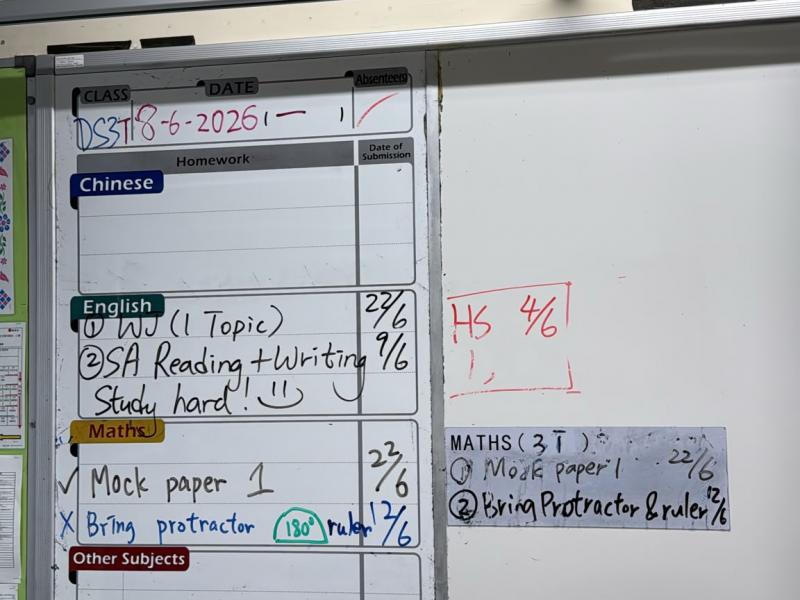 CLASS DATE Absentees
DS3T 8-6-2026
Homework Date of Submission
Chinese
English
① WJ (1 Topic) 22/6
② SA Reading + Writing 9/6
Study hard!
Maths
✓ Mock paper 1 22/6
X Bring protractor 180° ruler 12/6
Other Subjects
HS 4/6
MATHS (3T)
① Mock paper 1 22/6
② Bring Protractor & ruler 12/6